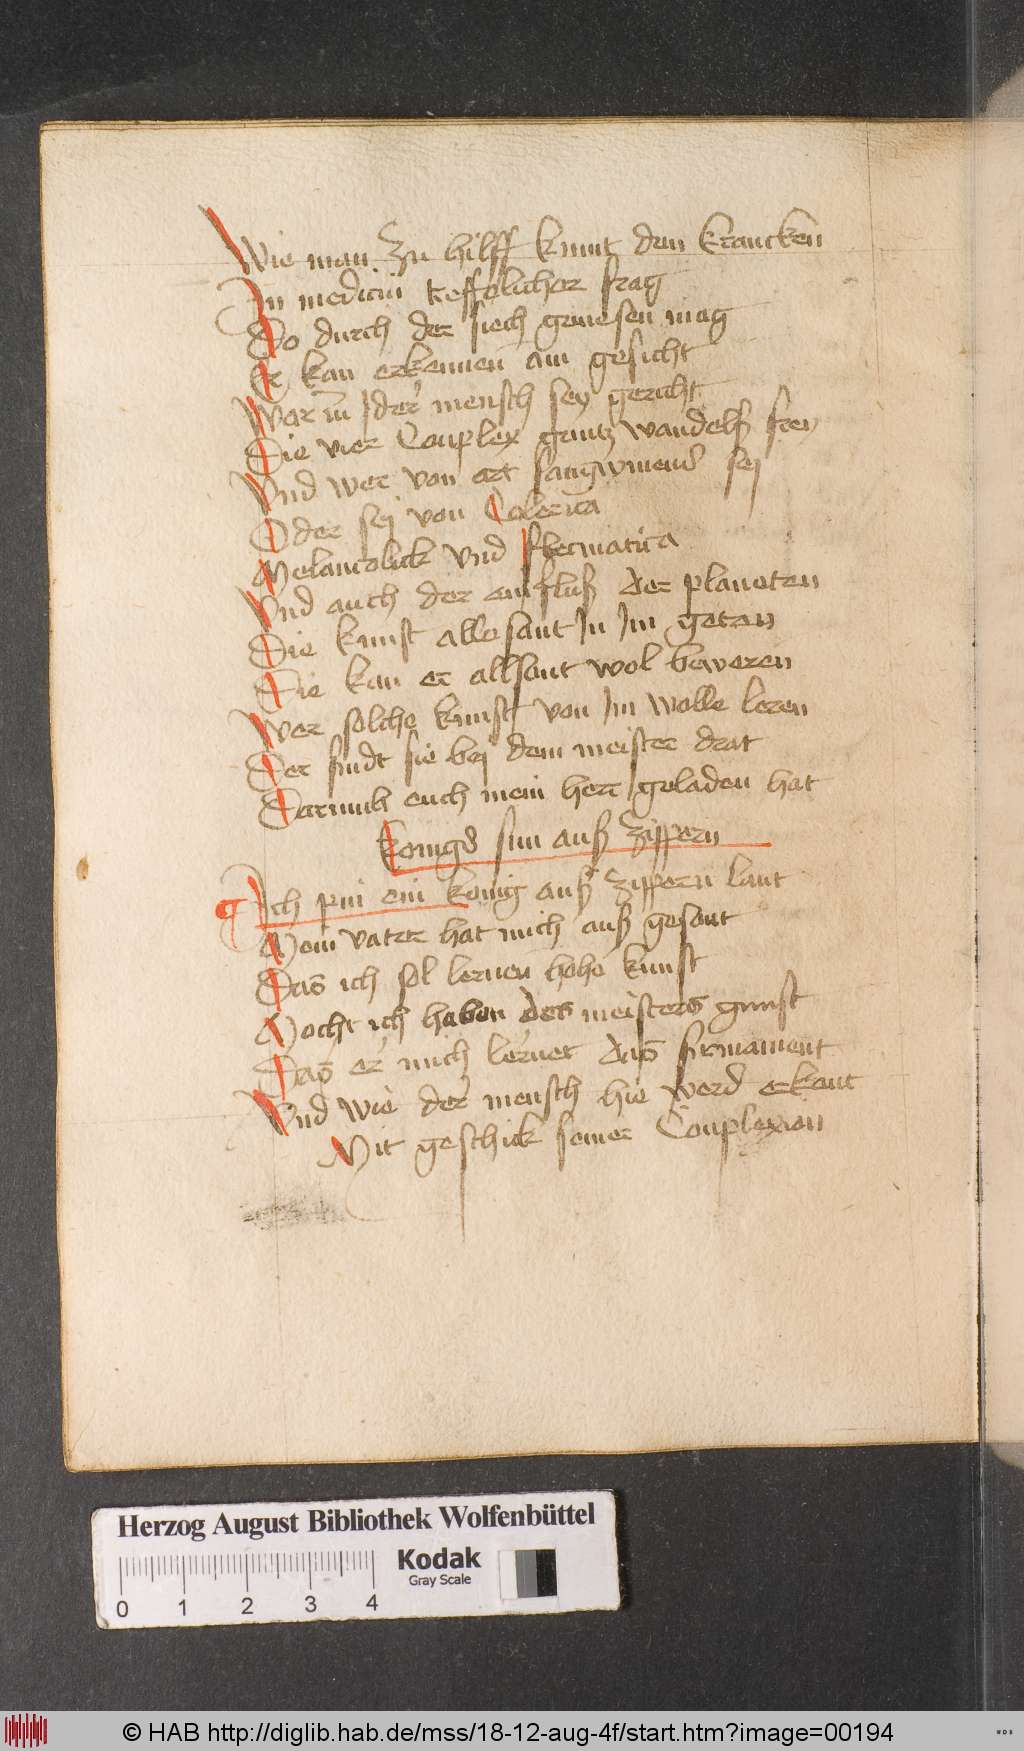 Wie man zu hilff kumt den krancken
In medicin treffelicher frag
Do durch der siech genesen mag
Er kan erkennen am gesicht
War in jder mensch sey gericht
Die vier Conplex gantz wandelß frey
Vnd wer von art sangwineus sej
Oder sej von Colerica
Melancolick vnd flecmatica
Vnd auch der einfluß der planeten
Die kunst alle sant In Im geten
Die kan er allsant wol beweren
Wer solche kunst von Im wolle leren
Der findt sie bej dem meister drat
Darumb euch mein herr geladen hat
Konigs sun auß zippern
Ich pin ein konig auß zippern lant
Mein vater hat mich auß gesant
Das ich sol lernen hohe kunst
Mocht ich haben des meisters gunst
Das er mich lernet das firmament
Vnd wie der mensch hie werd erkent
Mit geschick seiner Conplexion
Herzog August Bibliothek Wolfenbüttel
Kodak
Gray Scale
0 1 2 3 4
© HAB http://diglib.hab.de/mss/18-12-aug-4f/start.htm?image=00194
WDB